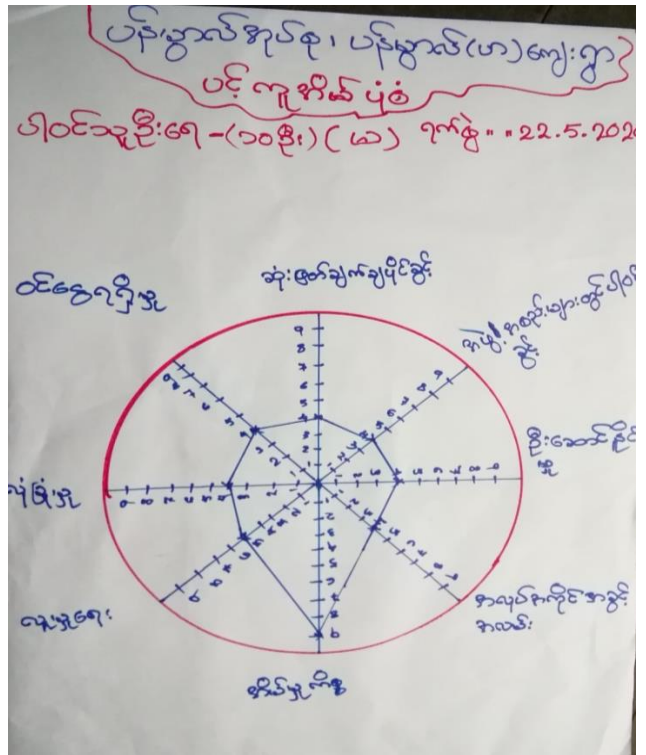 ပန်းမွှာလ်အုပ်စု၊ ပန်းမွှာလ်(ဟ)ကျေးရွာ
ပင့်ကူအိမ် ပုံစံ
ပါဝင်သူဦးရေ -(၁၀ဦး) ( မ ) ရက်စွဲ - - 22.5.202
ဆုံးဖြတ်ချက်ချပိုင်ခွင့်
ဝင်ငွေရရှိမှု
အဖွဲ့ အစည်းများတွင် ပါဝင်
ခွင့်
ဦးဆောင်နိုင်
မှု
လုံခြုံမှု
လူမှုရေး
အလုပ်အကိုင်အခွင့်
အလမ်း
အိမ်မှုကိစ္စ